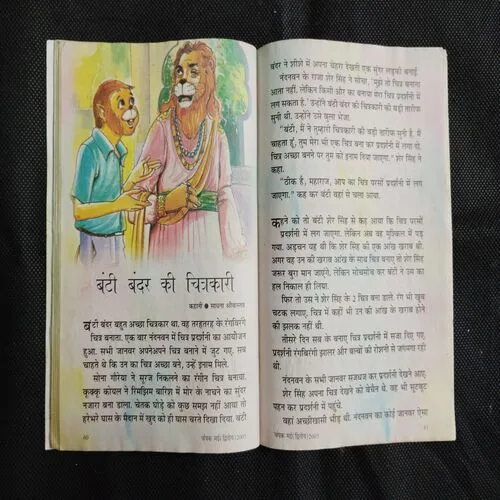 बंटी बंदर की चित्रकारी
कहानी ● साधना श्रीवास्तव
बंटी बंदर बहुत अच्छा चित्रकार था. वह तरहतरह के रंगबिरंगे
चित्र बनाता. एक बार नंदनवन में चित्र प्रदर्शनी का आयोजन
हुआ. सभी जानवर अपनेअपने चित्र बनाने में जुट गए. सब
चाहते थे कि उन का चित्र अच्छा बने, उन्हें इनाम मिले.
सोना गौरैया ने सूरज निकलने का रंगीन चित्र बनाया.
कुक्कू कोयल ने रिमझिम बारिश में मोर के नाचने का सुंदर
नजारा बना डाला. चेतक घोड़े को कुछ समझ नहीं आया तो
हरेभरे घास के मैदान में खुद को ही घास चरते दिखा दिया. बंटी
60
चंपक मई (द्वितीय) 2005
बंदर ने शीशे में अपना चेहरा देखती एक सुंदर लड़की बनाई.
नंदनवन के राजा शेर सिंह ने सोचा, 'मुझे तो चित्र बनाना
आता नहीं, लेकिन किसी और का बनाया मेरा चित्र प्रदर्शनी में
लग सकता है.' उन्होंने बंटी बंदर की चित्रकारी की बड़ी तारीफ
सुनी थी. उन्होंने उसे बुला भेजा.
"बंटी, मैं ने तुम्हारी चित्रकारी की बड़ी तारीफ सुनी है. मैं
चाहता हूं, तुम मेरा भी एक चित्र बना कर प्रदर्शनी में लगा दो.
चित्र अच्छा बनने पर तुम को इनाम दिया जाएगा." शेर सिंह ने
कहा.
"ठीक है, महाराज, आप का चित्र परसों प्रदर्शनी में लग
जाएगा." कह कर बंटी वहां से चला आया.
कहने को तो बंटी शेर सिंह से कह आया कि चित्र परसों
प्रदर्शनी में लग जाएगा. लेकिन अब वह मुश्किल में पड़
गया. अड़चन यह थी कि शेर सिंह की एक आंख खराब थी.
अगर वह उन की खराब आंख के साथ चित्र बनाए तो शेर सिंह
जरूर बुरा मान जाएंगे. लेकिन सोचसोच कर बंटी ने उस का
हल निकाल ही लिया.
फिर तो उस ने शेर सिंह के 2 चित्र बना डाले. रंग भी खूब
चटक लगाए, चित्र में कहीं भी उन की आंख के खराब होने
की झलक नहीं थी.
तीसरे दिन सब के बनाए चित्र प्रदर्शनी में सजा दिए गए.
प्रदर्शनी रंगबिरंगी झालर और बल्बों की रोशनी से जगमगा रही
थी.
नंदनवन के सभी जानवर सजधज कर प्रदर्शनी देखने आए.
शेर सिंह अपना चित्र देखने को बेचैन थे. वह भी सूटबूट
पहन कर प्रदर्शनी में पहुंचे.
वहां अच्छीखासी भीड़ थी. नंदनवन का कोई जानवर ऐसा
61
चंपक मई (द्वितीय) 2005